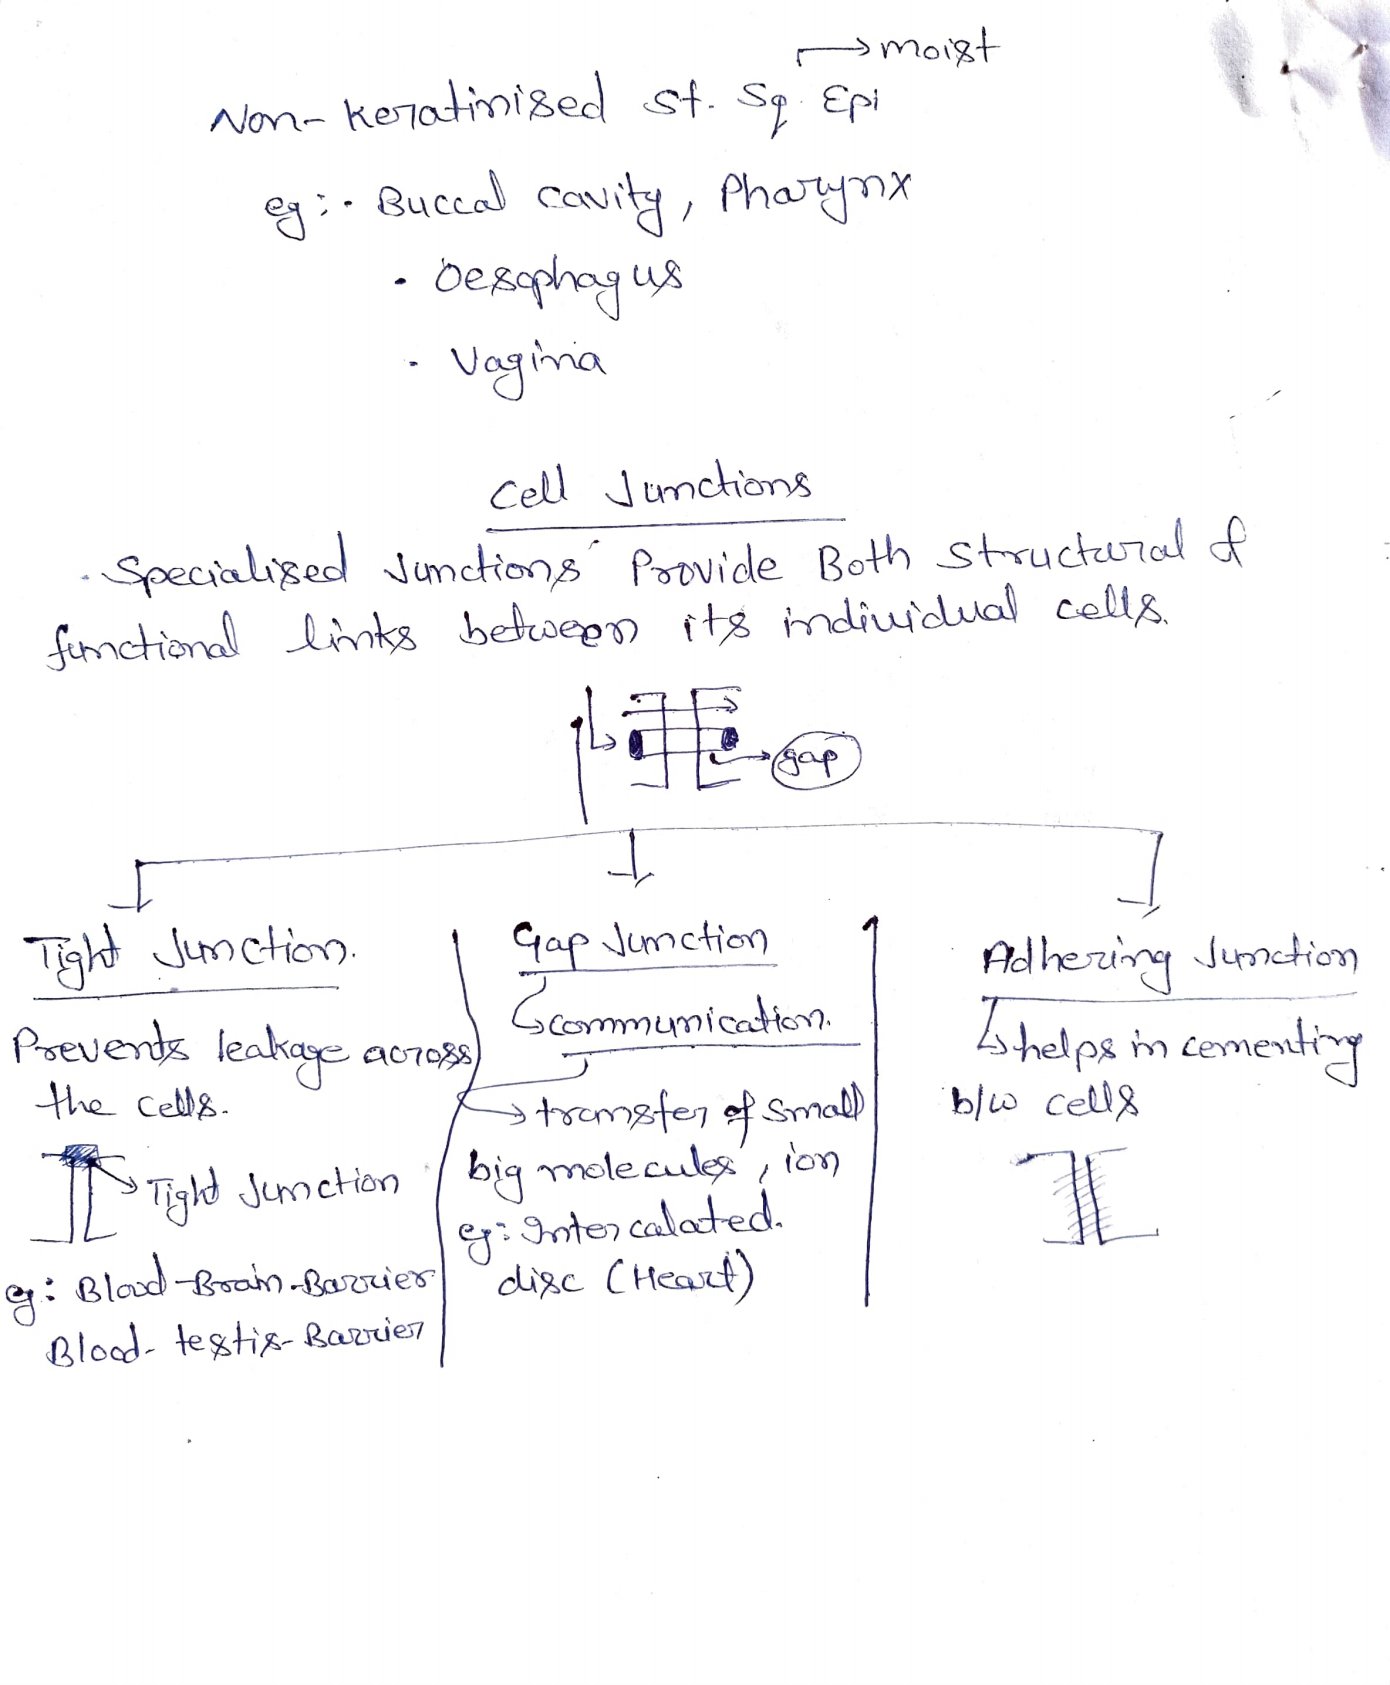 moist
Non-keratinised St. Sq. Epi
eg:· Buccal cavity, Pharynx
· Oesophagus
· Vagina
Cell Junctions
· Specialised Junctions Provide Both Structural &
functional links between its individual cells.
gap
Tight Junction.
Prevents leakage across
the cells.
Tight Junction
eg: Blood-Brain-Barrier
Blood-testis-Barrier
Gap Junction
communication.
transfer of small
big molecules, ion
eg: Intercalated.
disc (Heart)
Adhering Junction
helps in cementing
b/w cells